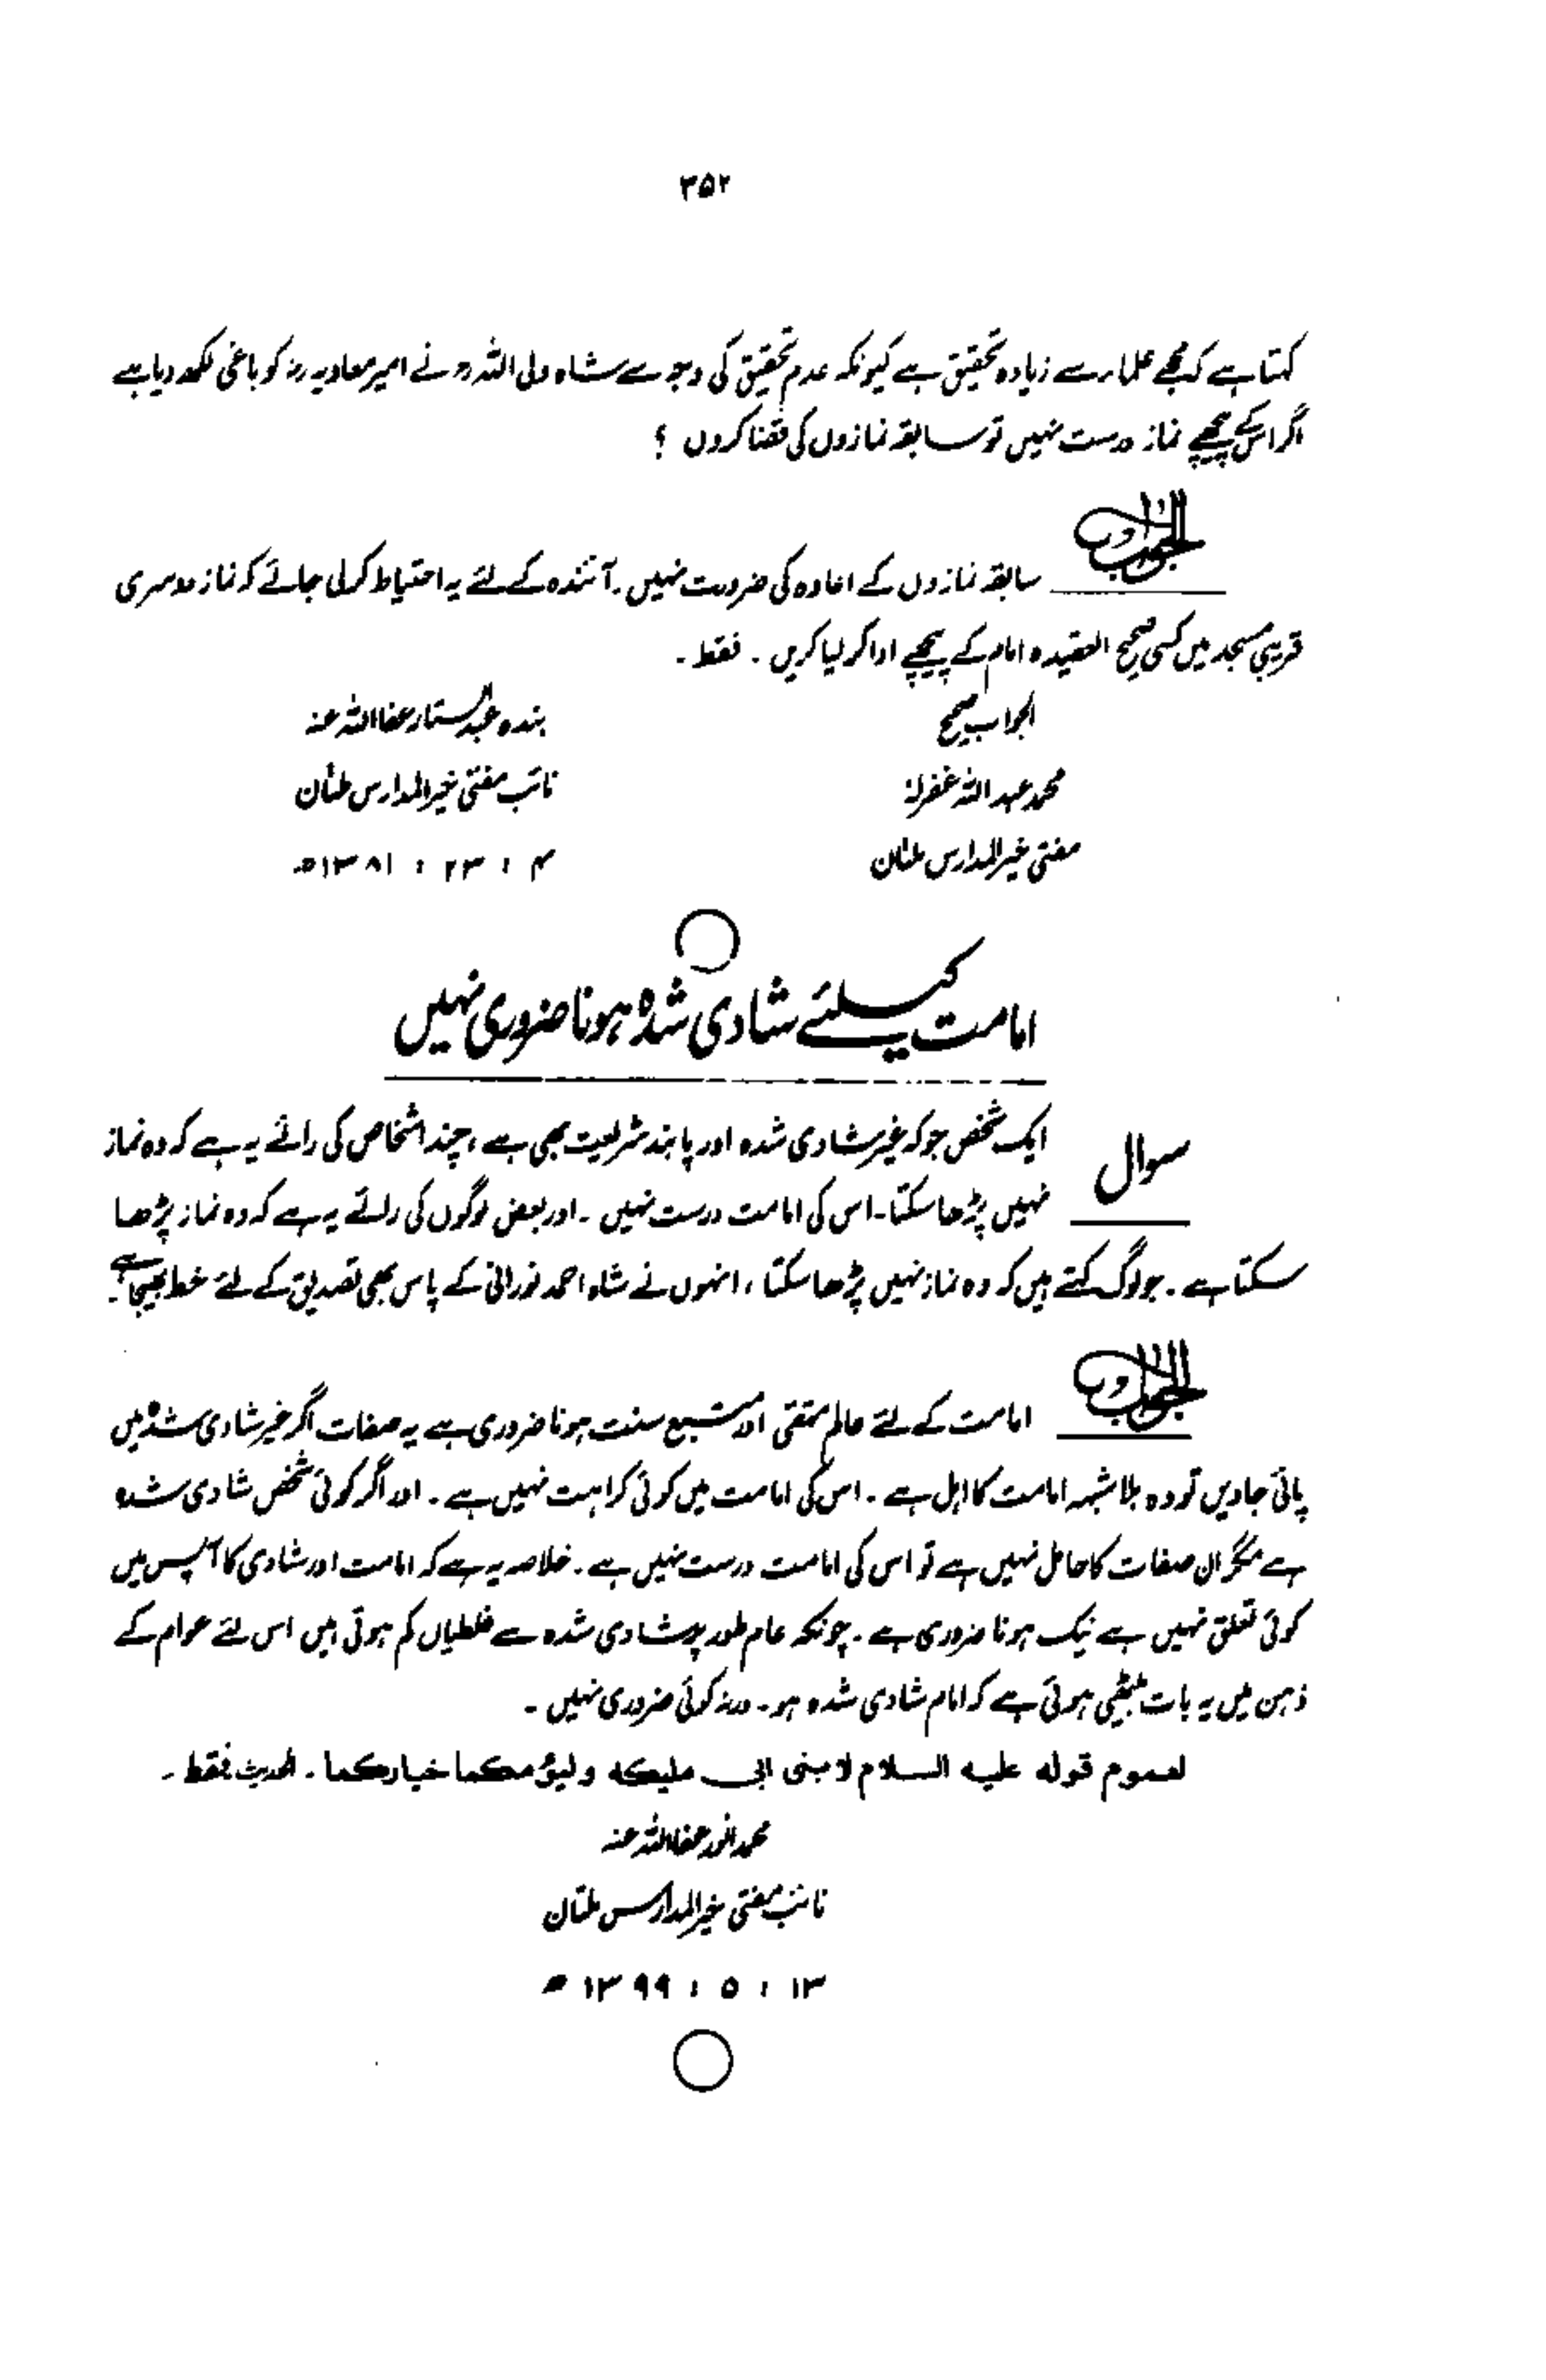 ۳۵۲
کہتا ہے کہ مجھے علماء سے زیادہ تحقیق ہے کیونکہ عدم تحقیق کی وجہ سے شاہ ولی اللہؒ نے امیر معاویہ رضؓ کو باغی لکھ دیا ہے
اگر اس کے پیچھے نماز درست نہیں تو سابقہ نمازوں کی قضا کروں ؟
الجواب
سابقہ نمازوں کے اعادہ کی ضرورت نہیں ۔ آئندہ کے لئے یہ احتیاط کر لی جائے کہ نماز دوسری
قریبی مسجد میں کسی صحیح العقیدہ امام کے پیچھے ادا کر لیا کریں ۔ فقط ۔
الجواب صحیح
بندہ عبدالستار عفا اللہ عنہ
محمد عبد اللہ غفرلہٗ
نائب مفتی خیر المدارس ملتان
مفتی خیر المدارس ملتان
۴ : ۲۳ : ۱۳۸۱ھ
امامت کیلئے شادی شدہ ہونا ضروری نہیں
سوال
ایک شخص جو کہ غیر شادی شدہ اور پابند شریعت بھی ہے ، چند اشخاص کی رائے یہ ہے کہ وہ نماز
نہیں پڑھا سکتا۔ اس کی امامت درست نہیں ۔ اور بعض لوگوں کی رائے یہ ہے کہ وہ نماز پڑھا
سکتا ہے ۔ جو لوگ کہتے ہیں کہ وہ نماز نہیں پڑھا سکتا ، انہوں نے شاہ احمد نورانی کے پاس بھی تصدیق کے لئے خط بھیجا ہے ؟
الجواب
امامت کے لئے عالم متقی اور متبع سنت ہونا ضروری ہے یہ صفات اگر غیر شادی شدہ میں
پائی جاویں تو وہ بلا شبہ امامت کا اہل ہے ۔ اس کی امامت میں کوئی کراہت نہیں ہے ۔ اور اگر کوئی شخص شادی شدہ
ہے مگر ان صفات کا حامل نہیں ہے تو اس کی امامت درست نہیں ہے ۔ خلاصہ یہ ہے کہ امامت اور شادی کا آپس میں
کوئی تعلق نہیں ہے نیک ہونا ضروری ہے ۔ چونکہ عام طور پر شادی شدہ سے غلطیاں کم ہوتی ہیں اس لئے عوام کے
ذہن میں یہ بات بیٹھی ہوئی ہے کہ امام شادی شدہ ہو ۔ ورنہ کوئی ضروری نہیں ۔
لعموم قوله عليه السلام لابنی ابی ملیکه ولیؤمکما خیارکما ۔ الحدیث فقط ۔
محمد انور عفا اللہ عنہ
نائب مفتی خیر المدارس ملتان
۱۳ : ۵ : ۱۳۹۹ ھ